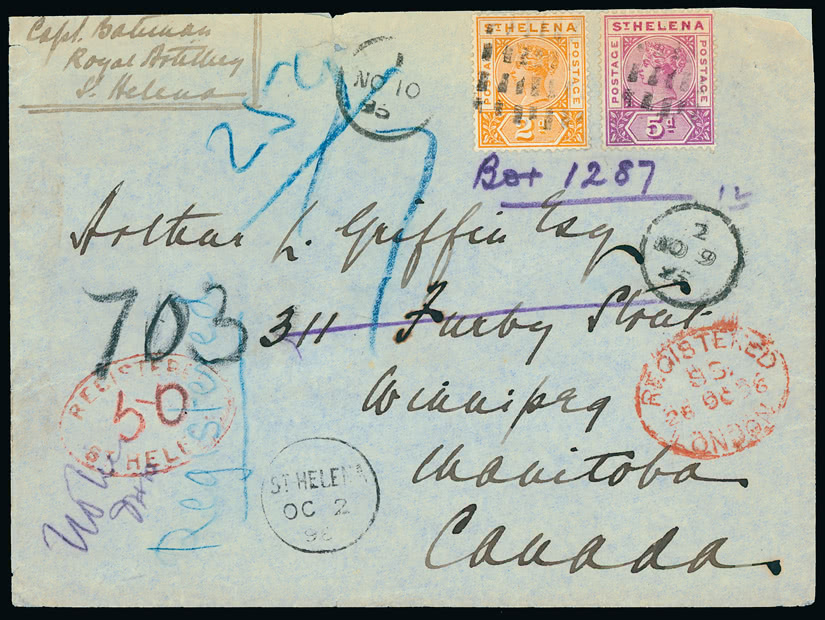 Capt. Bateman
Royal Artillery
St. Helena
1
NO 10
95
ST HELENA
POSTAGE
2½d
ST HELENA
POSTAGE
POSTAGE
5d
Box 1287
12
2
NO 9
Arthur L. Griffin Esq
703
311 Furby Street
Winnipeg
Manitoba
Canada
REGISTERED
50
ST HELENA
Registered
REGISTERED
LONDON
ST HELENA
OC 2